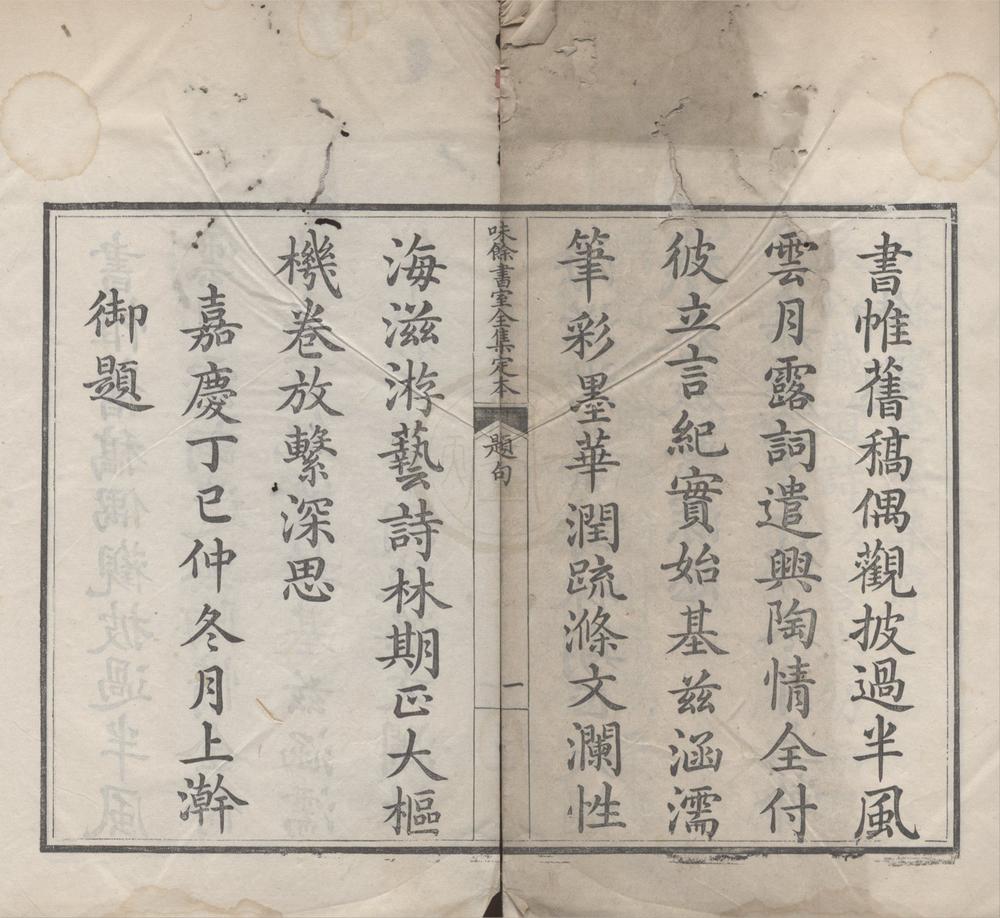 書帷舊稿偶觀披過半風
雲月露詞遣興陶情全付
彼立言紀實始基兹涵濡
筆彩墨華潤疏滌文瀾性
味餘書室全集定本
題句
一
海滋游藝詩林期正大樞
機卷放繫深思
嘉慶丁巳仲冬月上澣
御題